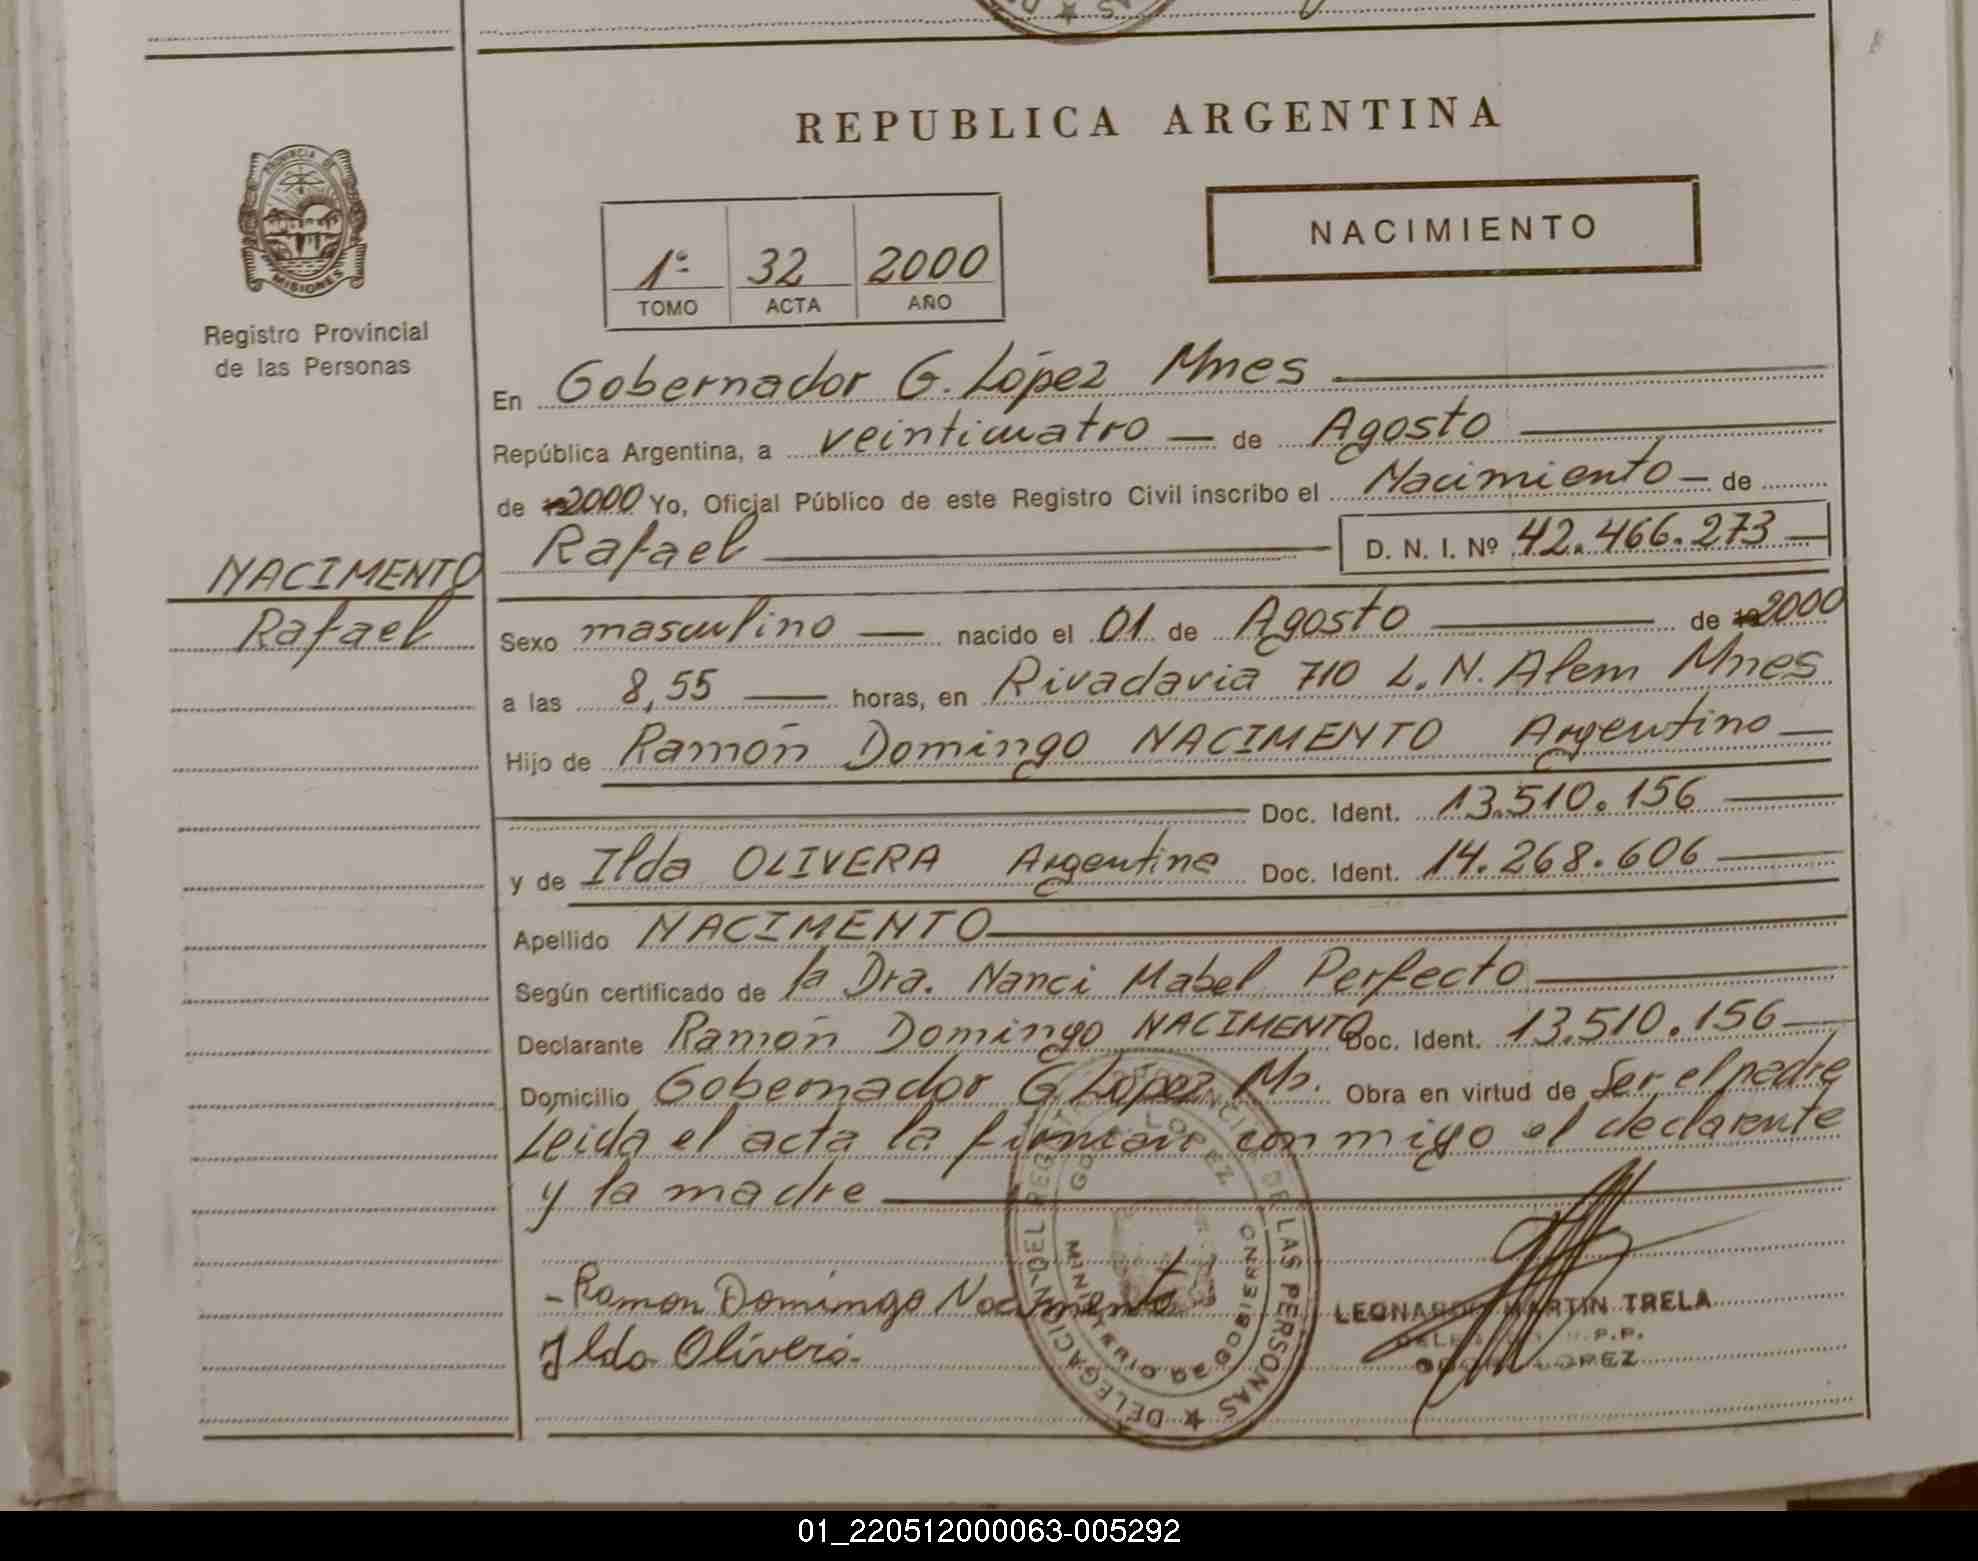 REPUBLICA ARGENTINA
PROVINCIA DE
MISIONES
Registro Provincial
de las Personas
NACIMIENTO
1º 32 2000
TOMO ACTA AÑO
En Gobernador G. López Mnes
República Argentina, a veinticuatro de Agosto
de 2000 Yo, Oficial Público de este Registro Civil inscribo el Nacimiento de
Rafael D. N. I. Nº 42.466.273
NACIMENTO
Rafael
Sexo masculino nacido el 01 de Agosto de 2000
a las 8,55 horas, en Rivadavia 710 L. N. Alem Mnes
Hijo de Ramón Domingo NACIMENTO Argentino
Doc. Ident. 13.510.156
y de Ilda OLIVERA Argentina Doc. Ident. 14.268.606
Apellido NACIMENTO
Según certificado de la Dra. Nanci Mabel Perfecto
Declarante Ramón Domingo NACIMENTO Doc. Ident. 13.510.156
Domicilio Gobernador G. López Ms. Obra en virtud de Ser el padre
Leida el acta la firman conmigo el declarante
y la madre
Ramon Domingo Nacimento
Ilda Olivera
DELEGACION DEL REGISTRO PROVINCIAL DE LAS PERSONAS
LOPEZ
MINISTERIO DE GOBIERNO
LEONARDO MARTIN TRELA
LOPEZ
01_220512000063-005292